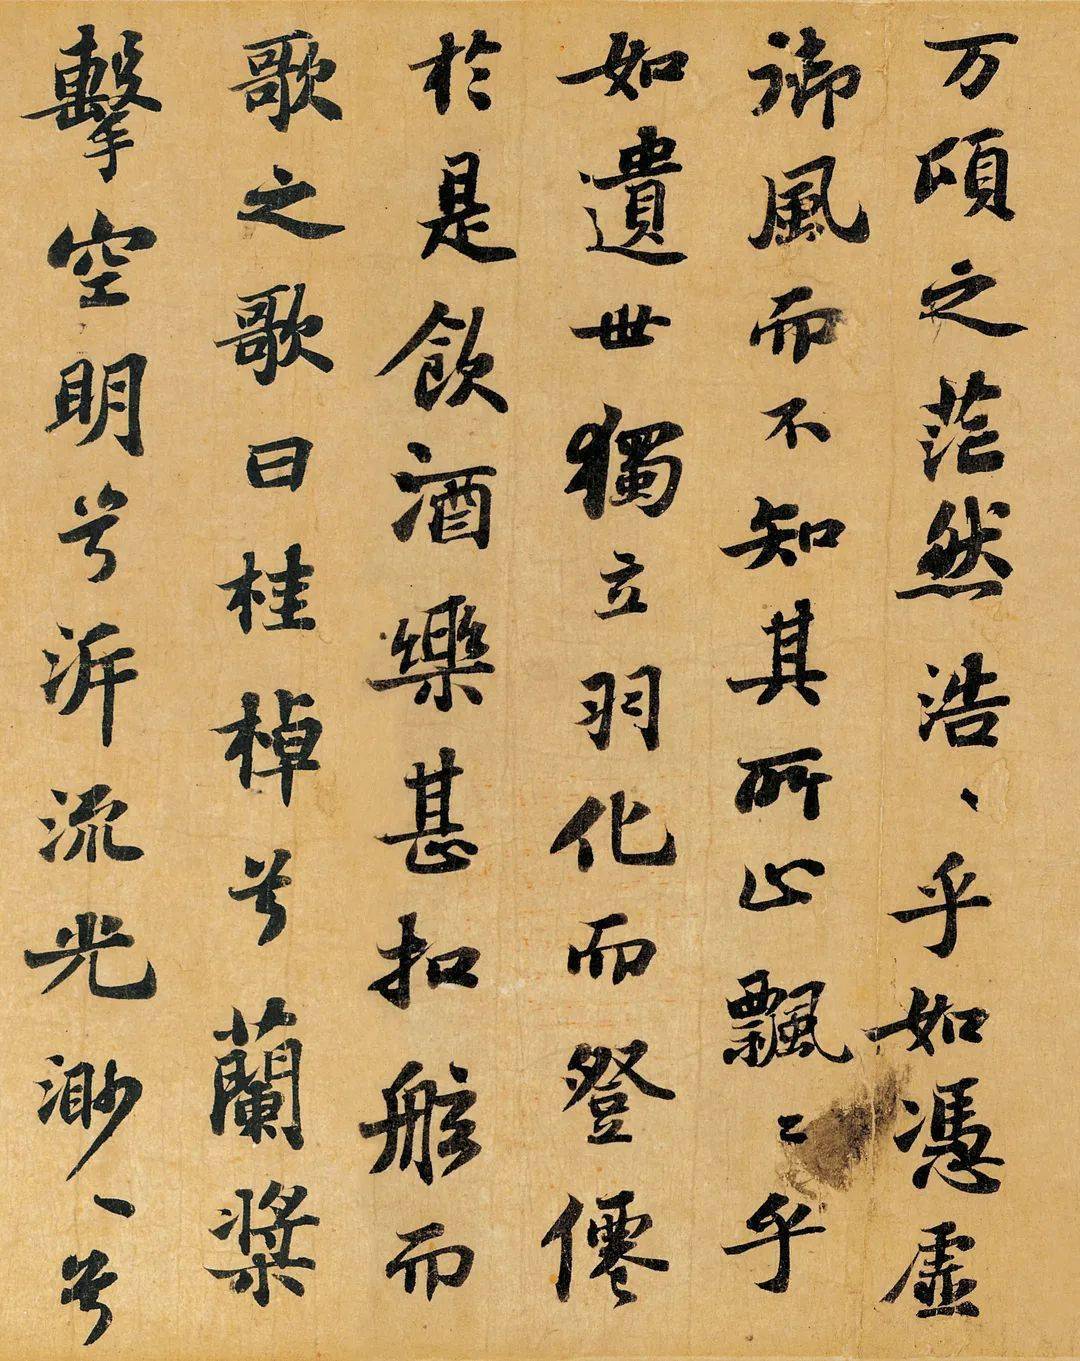 万頃之茫然浩、乎如憑虛
御風而不知其所止飄〻乎
如遺世獨立羽化而登僊
於是飲酒樂甚扣舷而
歌之歌曰桂棹兮蘭槳
擊空明兮泝流光渺、兮